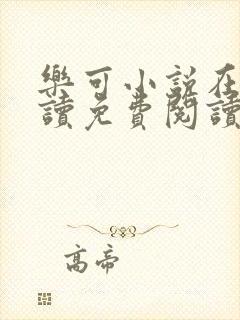 樂可小說在
讀免費閱讀
高帝